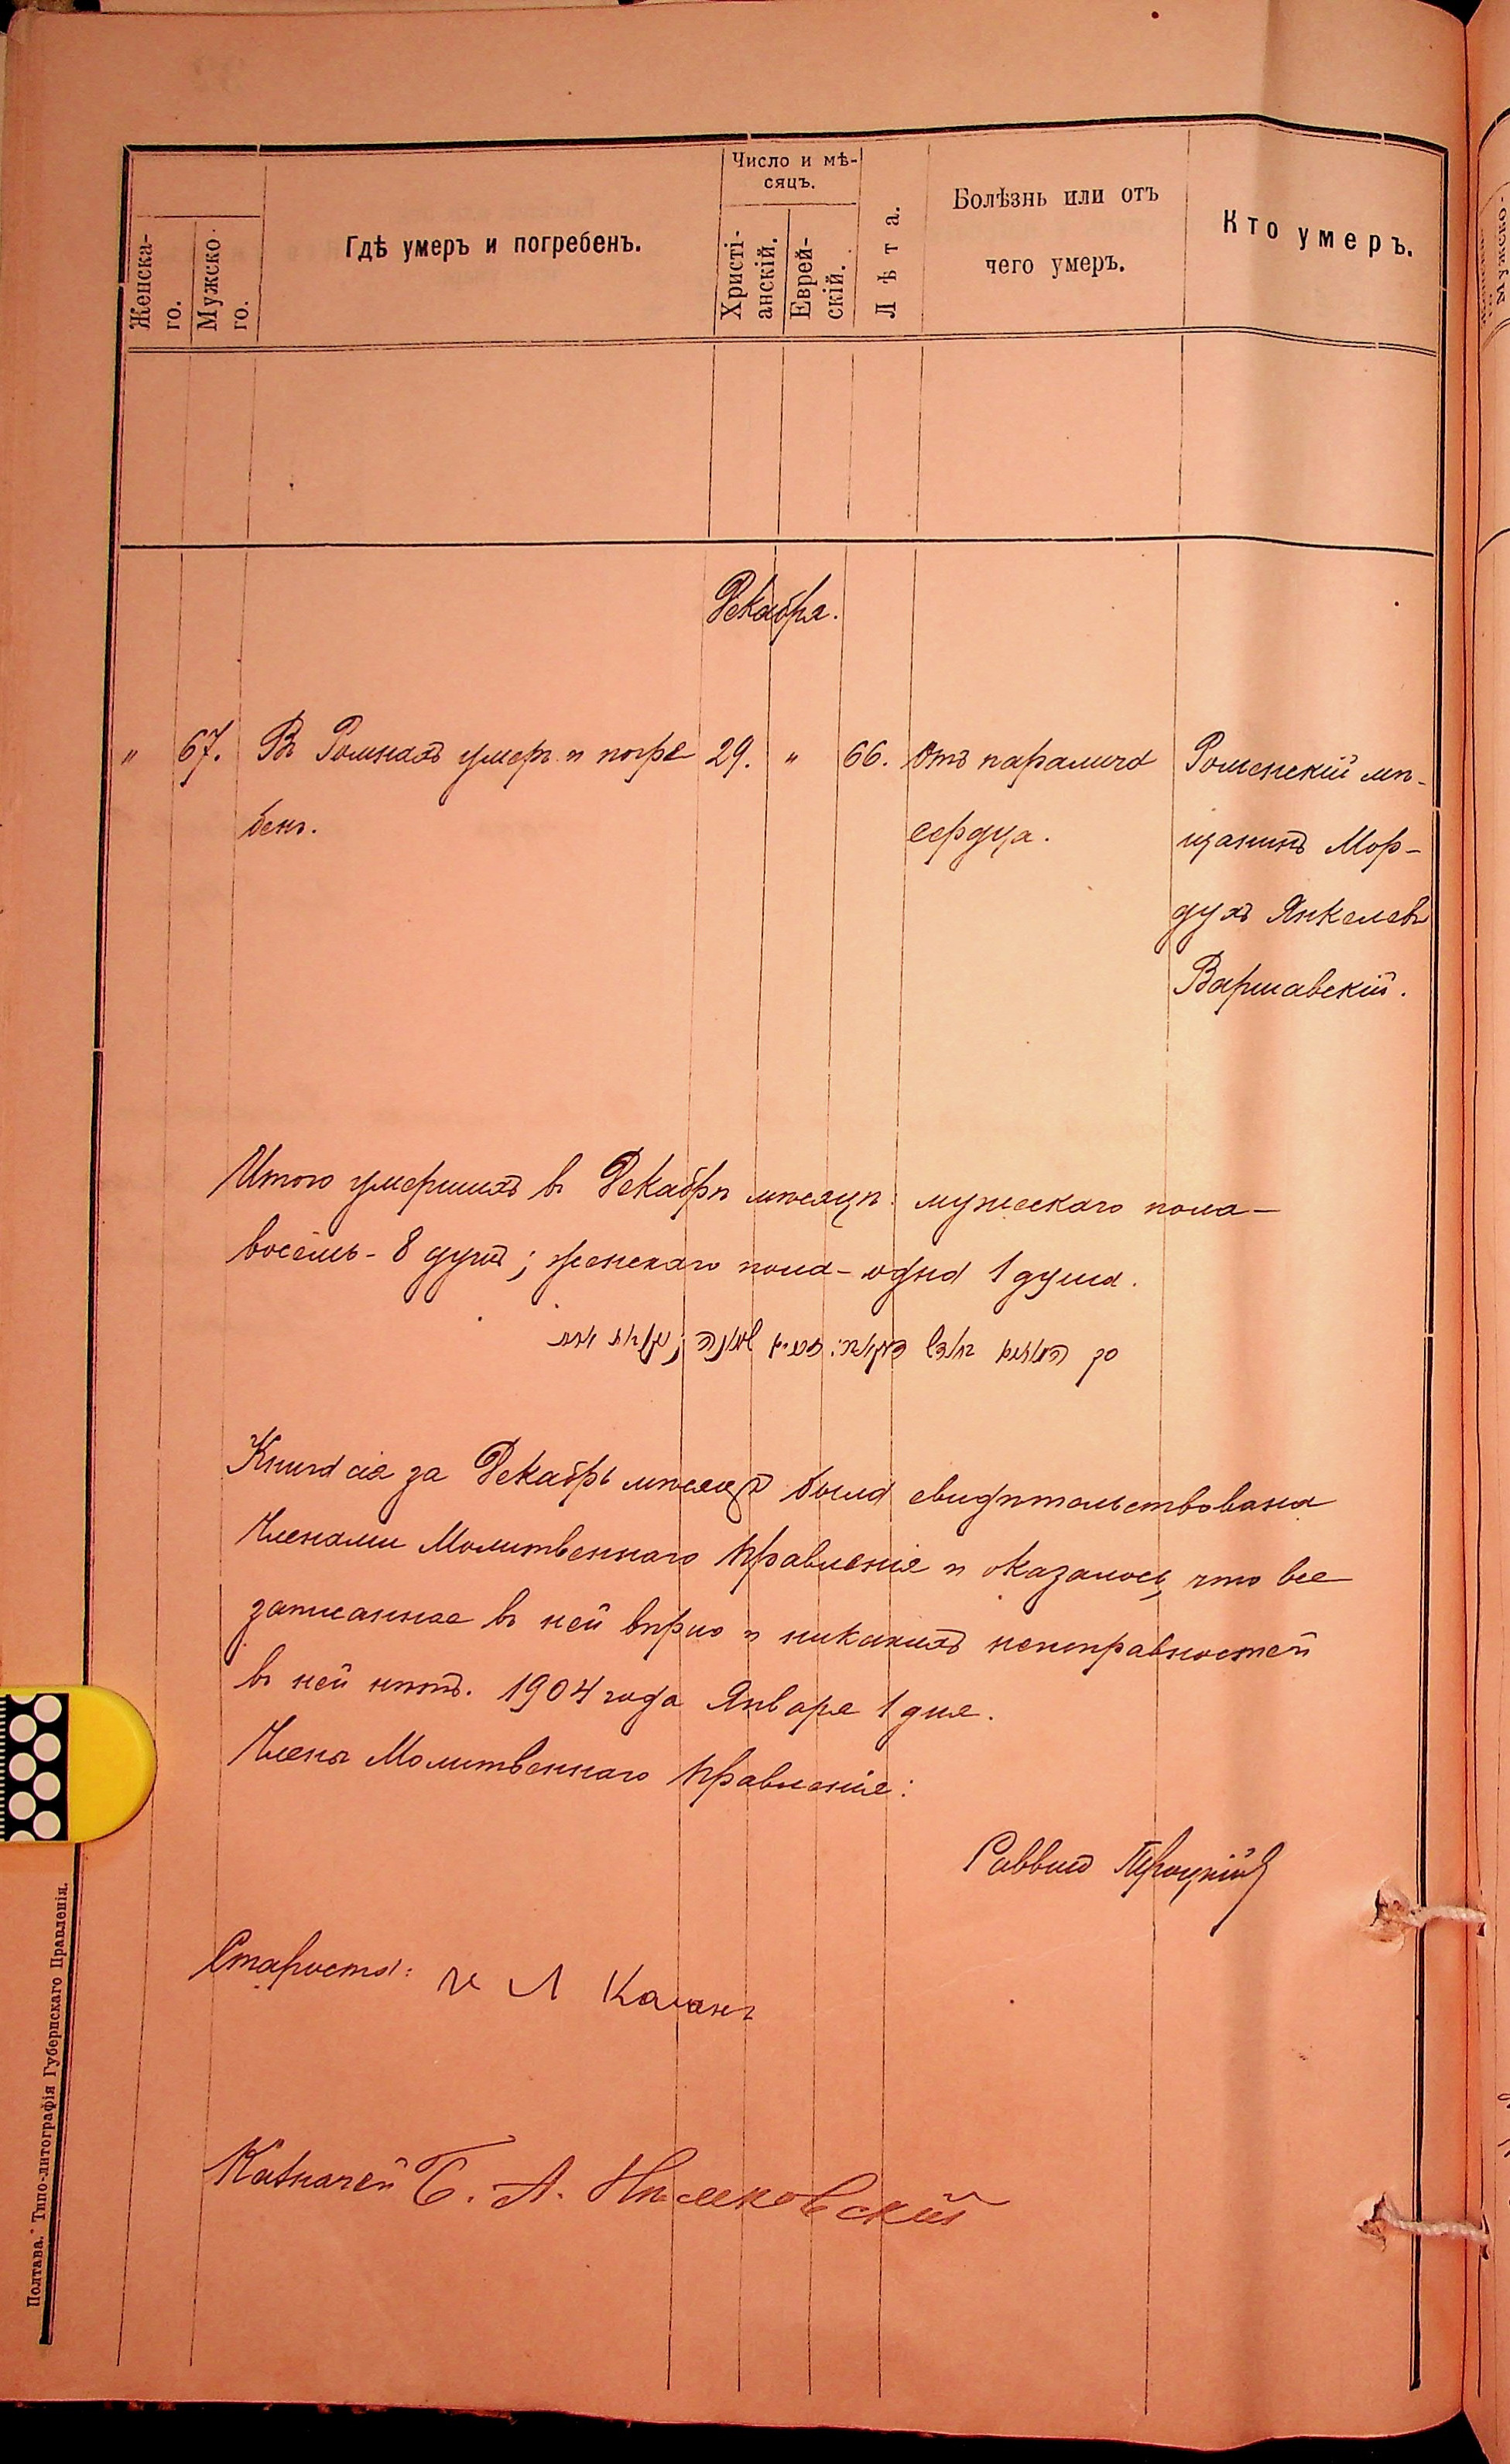 Число и мѣ-
сяцъ.
Женска-
го.
Мужско-
го.
Гдѣ умеръ и погребенъ.
Христі-
анскій.
Еврей-
скій.
Лѣта.
Болѣзнь или отъ
чего умеръ.
Кто умеръ.
Декабря.
" 67. Въ Ромнахъ умеръ и погре- 29. " 66. Отъ паралича Роменскій мѣ-
бенъ. сердца. щанинъ Мор-
духъ Янкелевъ
Варшавскій.
Итого умершихъ въ Декабрѣ мѣсяцѣ: мужескаго пола-
восемь - 8 душъ; женскаго пола - одна 1 душа.
Книга сія за Декабрь мѣсяцъ была свидѣтельствована
Членами Молитвеннаго Правленія и оказалось, что все
записанное въ ней вѣрно и никакихъ неисправностей
въ ней нѣтъ. 1904 года Января 1 дня.
Члены Молитвеннаго Правленія:
Раввинъ Троцкій
Старосты: Л Каганъ
Казначей Б. А.
Полтава. Типо-литографія Губернскаго Правленія.